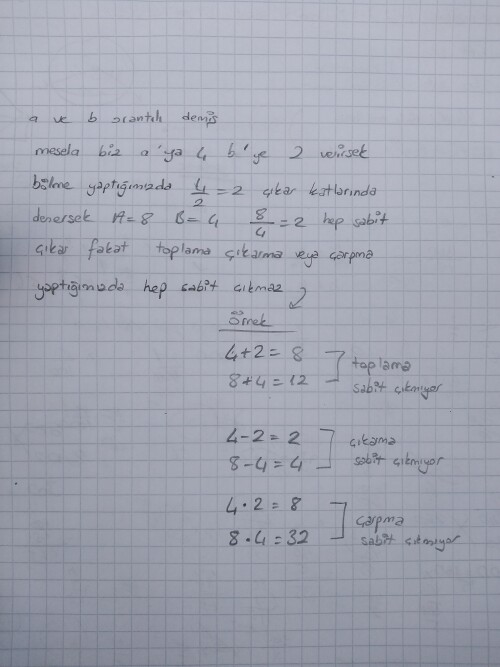 a ve b orantılı demiş
mesela biz a'ya 4 b'ye 2 verirsek
bölme yaptığımızda 4/2 = 2 çıkar katlarında
denersek A=8 B=4 8/4 = 2 hep sabit
çıkar fakat toplama çıkarma veya çarpma
yaptığımızda hep sabit çıkmaz
örnek
4+2=8
8+4=12
toplama
sabit çıkmıyor
4-2=2
8-4=4
çıkarma
sabit çıkmıyor
4·2=8
8·4=32
çarpma
sabit çıkmıyor